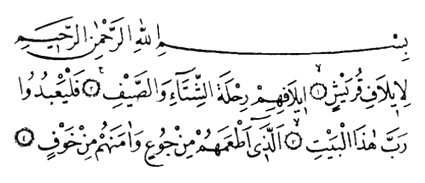 بِسْمِ اللهِ الرَّحْمٰنِ الرَّحِيمِ
لِإِيلَافِ قُرَيْشٍ ۙ ﴿١﴾ إِيلَافِهِمْ رِحْلَةَ الشِّتَاءِ وَالصَّيْفِ ۚ ﴿٢﴾ فَلْيَعْبُدُوا
رَبَّ هٰذَا الْبَيْتِ ۙ ﴿٣﴾ اَلَّذِي أَطْعَمَهُمْ مِنْ جُوعٍ وَاٰمَنَهُمْ مِنْ خَوْفٍ ﴿٤﴾